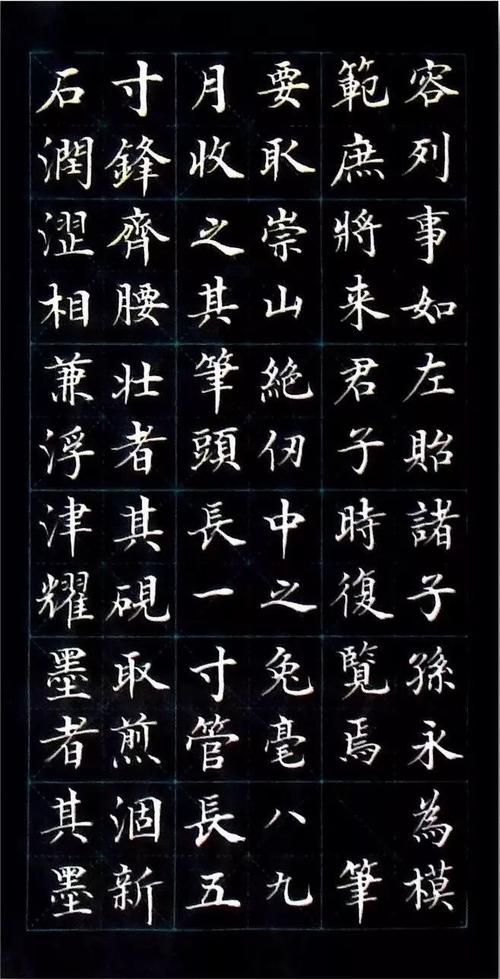 容列事如左貽諸子孫永為模
範庶將來君子時復覽焉 筆
要取崇山絕仞中之兔毫八九
月收之其筆頭長一寸管長五
寸鋒齊腰壯者其硯取煎涸新
石潤澀相兼浮津耀墨者其墨